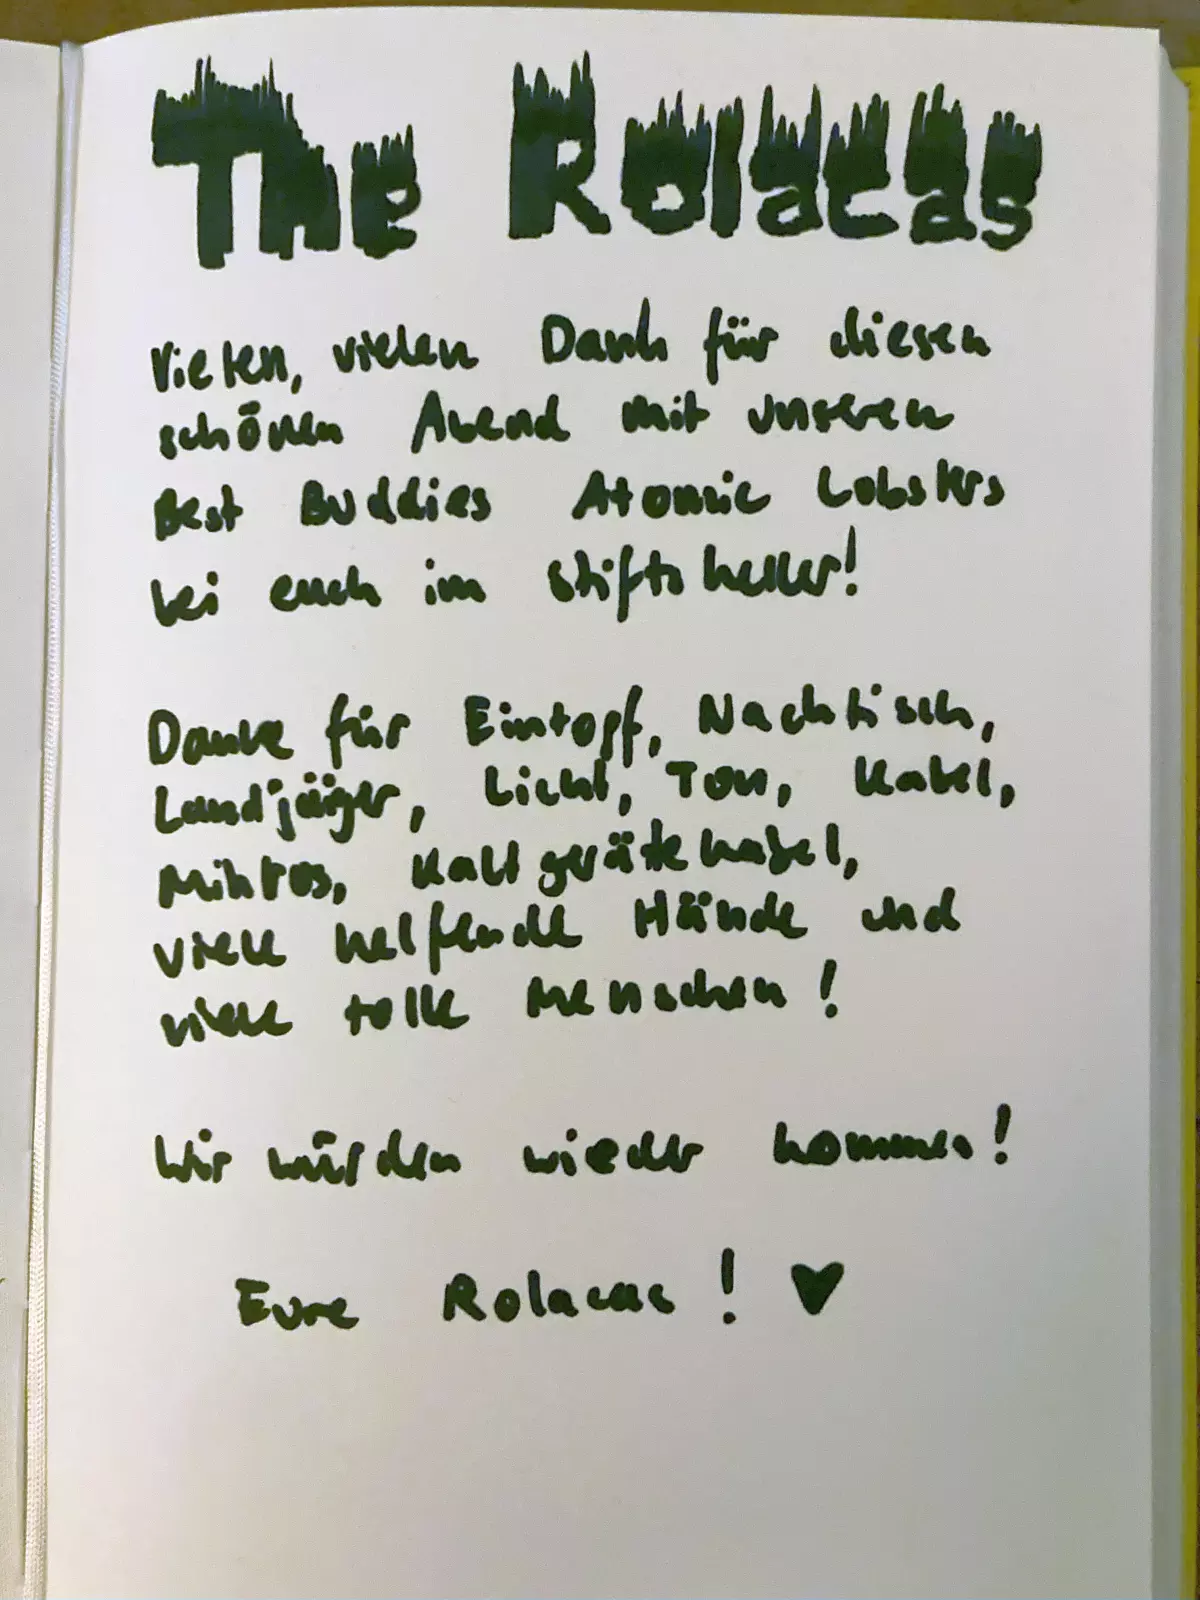 The Rolacas
Vielen, vielen Dank für diesen
schönen Abend mit unseren
Best Buddies Atomic Lobsters
bei euch im Stiftskeller!
Danke für Eintopf, Nachtisch,
Landjäger, Licht, Ton, Kabel,
Mikros, Kaltgerätekabel,
viele helfende Hände und
viele tolle Menschen!
Wir würden wieder kommen!
Eure Rolacas! ♥